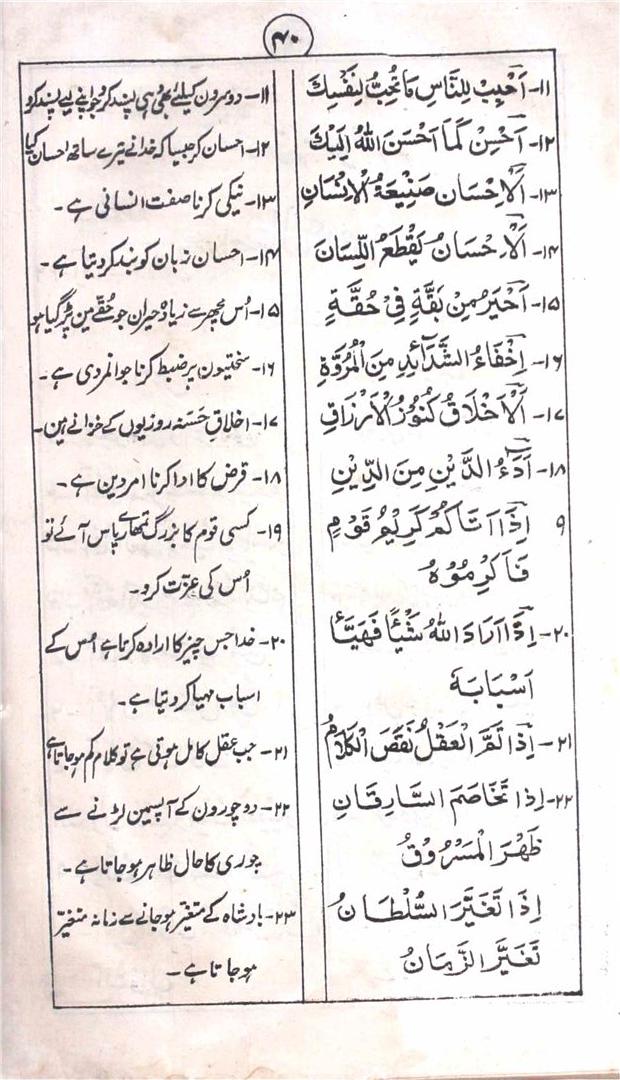 ۴۰
۱۱- اَحْبِبْ لِلنَّاسِ مَا تُحِبُّ لِنَفْسِكَ
۱۲- اَحْسِنْ كَمَا اَحْسَنَ اللهُ اِلَيْكَ
۱۳- اَلْاِحْسَانُ صَنِيْعَةُ الْاِنْسَانِ
۱۴- اَلْاِحْسَانُ يَقْطَعُ اللِّسَانَ
۱۵- اَحْيَرُ مِنْ بَقَّةٍ فِيْ حُقَّةٍ
۱۶- اِخْفَاءُ الشَّدَائِدِ مِنَ الْمُرُوَّةِ
۱۷- اَلْاَخْلَاقُ كُنُوْزُ الْاَرْزَاقِ
۱۸- اَدَاءُ الدَّيْنِ مِنَ الدِّيْنِ
۹ اِذَا اَتَاكُمْ كَرِيْمُ قَوْمٍ
فَاَكْرِمُوْهُ
۲۰- اِذَا اَرَادَ اللهُ شَيْئًا فَهَيَّأَ
اَسْبَابَهٗ
۲۱- اِذَا تَمَّ الْعَقْلُ نَقَصَ الْكَلَامُ
۲۲- اِذَا تَخَاصَمَ السَّارِقَانِ
ظَهَرَ الْمَسْرُوْقُ
اِذَا تَغَيَّرَ السُّلْطَانُ
تَغَيَّرَ الزَّمَانُ
۱۱- دوسرون کیلئے بھی وہی پسند کرو جو اپنے لیے پسند کرو
۱۲- احسان کر جیسا کہ خدا نے تیرے ساتھ احسان کیا
۱۳- نیکی کرنا صفت انسانی ہے۔
۱۴- احسان زبان کو بند کر دیتا ہے۔
۱۵- اُس مچھر سے زیادہ حیران جو حُقّے مین پڑ گیا ہو
۱۶- سختیون پر ضبط کرنا جوانمردی ہے۔
۱۷- اخلاقِ حَسَنہ روزیوں کے خزانے ہین۔
۱۸- قرض کا ادا کرنا امرِ دین ہے۔
۱۹- کسی قوم کا بزرگ تمھارے پاس آئے تو
اُس کی عزّت کرو۔
۲۰- خدا جس چیز کا ارادہ کرتا ہے اُس کے
اسباب مہیا کر دیتا ہے۔
۲۱- جب عقل کامل ہوتی ہے تو کلام کم ہو جاتا ہے
۲۲- دو چورون کے آپسمین لڑنے سے
چوری کا حال ظاہر ہو جاتا ہے۔
۲۳- بادشاہ کے متغیّر ہو جانے سے زمانہ متغیّر
ہو جاتا ہے۔